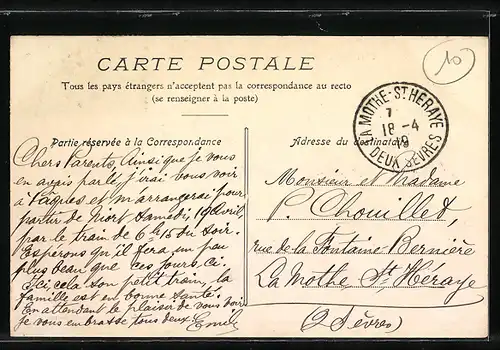 CARTE POSTALE
Tous les pays étrangers n'acceptent pas la correspondance au recto
(se renseigner à la poste)
10
LA MOTHE-ST HERAYE
7
18 -4
09
DEUX SÈVRES
Partie réservée à la Correspondance
Chers Parents, Ainsi que je vous
en avais parlé, j'irai vous voir
à Pâques et m'arrangerai pour
partir de Niort Samedi, 19 Avril,
par le train de 6h15 du soir.
Esperons qu'il fera un peu
plus beau que ces jours ci.
Ici cela son petit train, la
famille est en bonne santé.
En attendant le plaisir de vous voir
je vous embrasse tous deux. Emile
Adresse du destinataire
Monsieur et Madame
P. Chouillet,
rue de la Fontaine-Bernière
La Mothe St Héraye
(2 Sèvres)